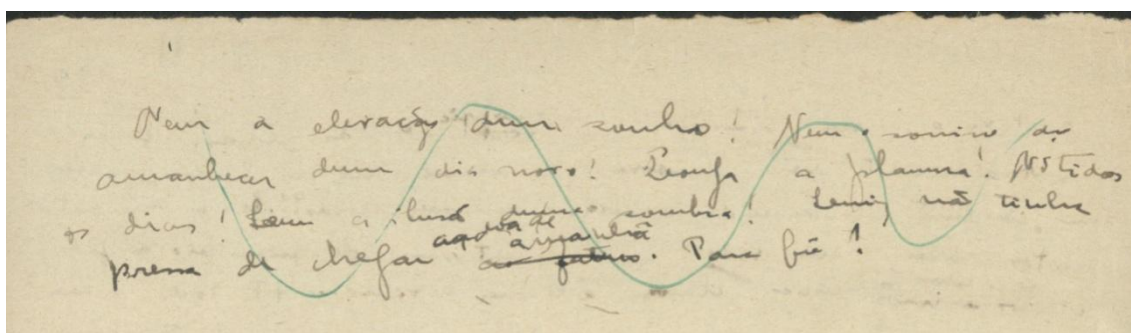 Nem a elevação dum sonho! Nem o sorriso do
amanhecer dum dia novo! Longa a planura! Nítidos
os dias! Sem a ilusão duma sombra! Leni, não tinha
pressa de chegar ao dia de amanhã. Para quê!